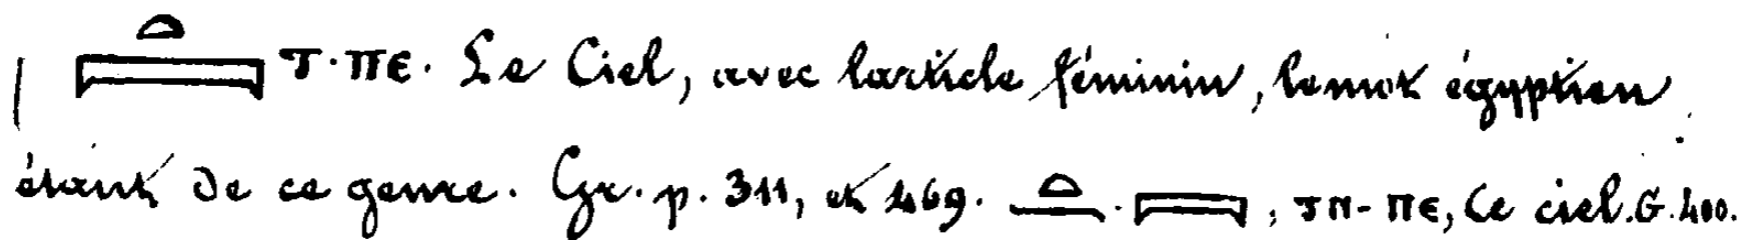 𓏏𓇯 Ⲧ·ⲠⲈ. Le Ciel, avec l'article féminin, le mot égyptien
étant de ce genre. Gr. p. 311, et 469. 𓏏𓈖 . 𓇯, ⲦⲚ-ⲠⲈ, Ce ciel. G. 400.